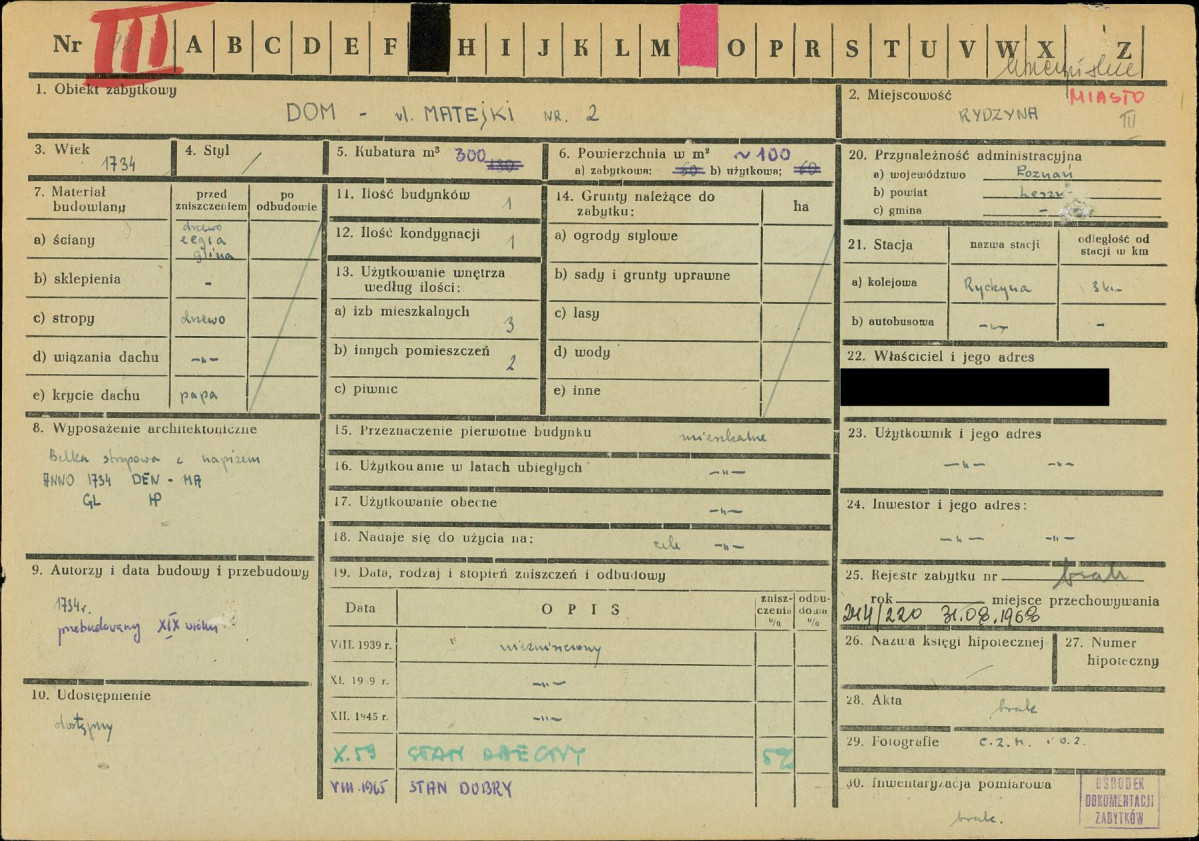 Nr III A B C D E F H I J K L M O P R S T U V W X Z
1. Obiekt zabytkowy
DOM - ul. MATEJKI NR. 2
2. Miejscowość
MIASTO
RYDZYNA III
3. Wiek 1734
4. Styl /
5. Kubatura m³ 300 180
6. Powierzchnia w m² ~100
a) zabytkowa: 60 b) użytkowa; 60
7. Materiał budowlany
przed zniszczeniem
po odbudowie
a) ściany drzewo cegła glina
b) sklepienia -
c) stropy drzewo
d) wiązania dachu -"-
e) krycie dachu papa
8. Wyposażenie architektoniczne
Belka stropowa z napisem
ANNO 1734 DEN - MA
GL HP
9. Autorzy i data budowy i przebudowy
1734r.
przebudowany XIX wieku
10. Udostępnienie
dostępny
11. Ilość budynków 1
12. Ilość kondygnacji 1
13. Użytkowanie wnętrza
według ilości:
a) izb mieszkalnych 3
b) innych pomieszczeń 2
c) piwnic
14. Grunty należące do
zabytku: ha
a) ogrody stylowe
b) sady i grunty uprawne
c) lasy
d) wody
e) inne
15. Przeznaczenie pierwotne budynku mieszkalne
16. Użytkowanie w latach ubiegłych -"-
17. Użytkowanie obecne -"-
18. Nadaje się do użycia na: cele -"-
19. Data, rodzaj i stopień zniszczeń i odbudowy
Data OPIS zniszczenia % odbudowa %
VIII. 1939 r. niezniszczony
XI. 19 9 r. -"-
XII. 1945 r. -"-
X.59 STAN OBECNY 5%
VIII.1965 STAN DOBRY
20. Przynależność administracyjna
a) województwo Poznań
b) powiat Leszno
c) gmina -
21. Stacja
nazwa stacji
odległość od
stacji w km
a) kolejowa Rydzyna 3 km
b) autobusowa -"- -
22. Właściciel i jego adres
23. Użytkownik i jego adres
-"- -"-
24. Inwestor i jego adres:
-"- -"-
25. Rejestr zabytku nr brak
rok miejsce przechowywania
244/220 31.08.1968
26. Nazwa księgi hipotecznej /
27. Numer
hipoteczny
28. Akta brak
29. Fotografie C.Z.M. i O.Z.
30. Inwentaryzacja pomiarowa
brak.
OŚRODEK
DOKUMENTACJI
ZABYTKÓW